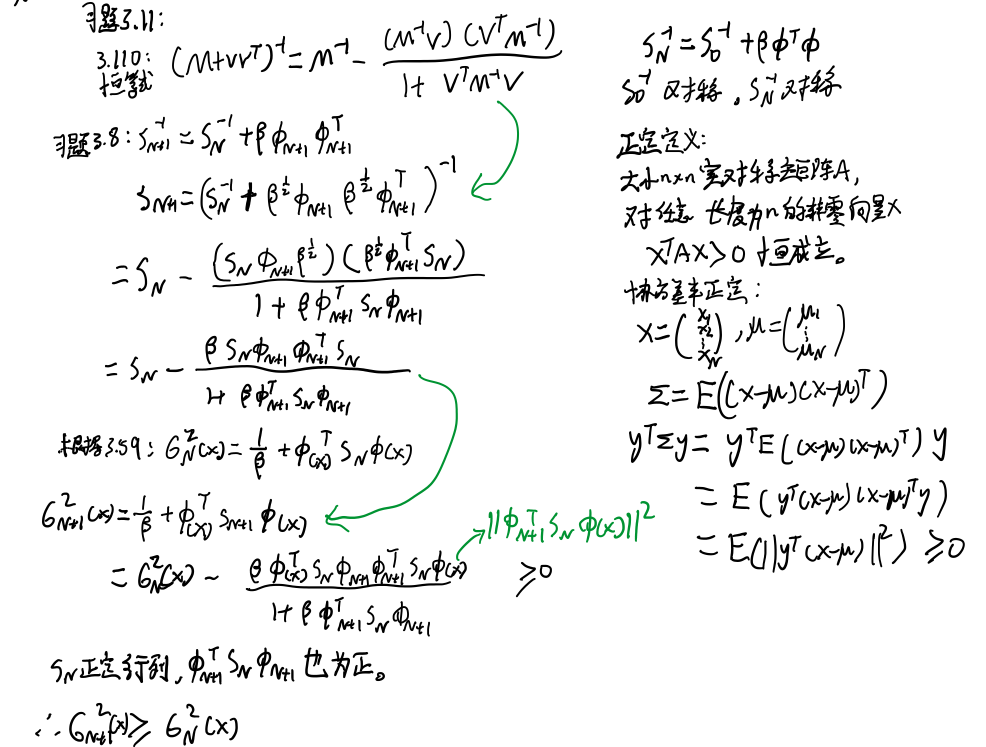 习题3.11:
3.110: 恒等式 (M+vvᵀ)⁻¹ = M⁻¹ - (M⁻¹v)(VᵀM⁻¹) / (1+VᵀM⁻¹V)
习题3.8: S_{N+1}⁻¹ = S_N⁻¹ + β φ_{N+1} φ_{N+1}ᵀ
S_{N+1} = (S_N⁻¹ + β^{1/2} φ_{N+1} β^{1/2} φ_{N+1}ᵀ)⁻¹
= S_N - (S_N φ_{N+1} β^{1/2})(β^{1/2} φ_{N+1}ᵀ S_N) / (1+β φ_{N+1}ᵀ S_N φ_{N+1})
= S_N - β S_N φ_{N+1} φ_{N+1}ᵀ S_N / (1+β φ_{N+1}ᵀ S_N φ_{N+1})
根据3.59: σ_N²(x) = 1/β + φ(x)ᵀ S_N φ(x)
σ_{N+1}²(x) = 1/β + φ(x)ᵀ S_{N+1} φ(x)
||φ_{N+1}ᵀ S_N φ(x)||²
= σ_N²(x) - β φ(x)ᵀ S_N φ_{N+1} φ_{N+1}ᵀ S_N φ(x) / (1+β φ_{N+1}ᵀ S_N φ_{N+1}) ≥0
S_N正定行列, φ_{N+1}ᵀ S_N φ_{N+1} 也为正。
∴ σ_{N+1}²(x) ≥ σ_N²(x)
S_N⁻¹ = S_0⁻¹ + β φᵀ φ
S_0⁻¹ 对称。S_N⁻¹ 对称
正定定义:
大小n×n实对称矩阵A,
对任意 长度为n的非零向量X
XᵀAX>0 恒成立。
协方差半正定:
X = (x₁ x₂ ⋮ x_N), μ = (μ₁ ⋮ μ_N)
Σ = E((x-μ)(x-μ)ᵀ)
yᵀΣy = yᵀE((x-μ)(x-μ)ᵀ)y
= E(yᵀ(x-μ)(x-μ)ᵀy)
= E(||yᵀ(x-μ)||²) ≥0